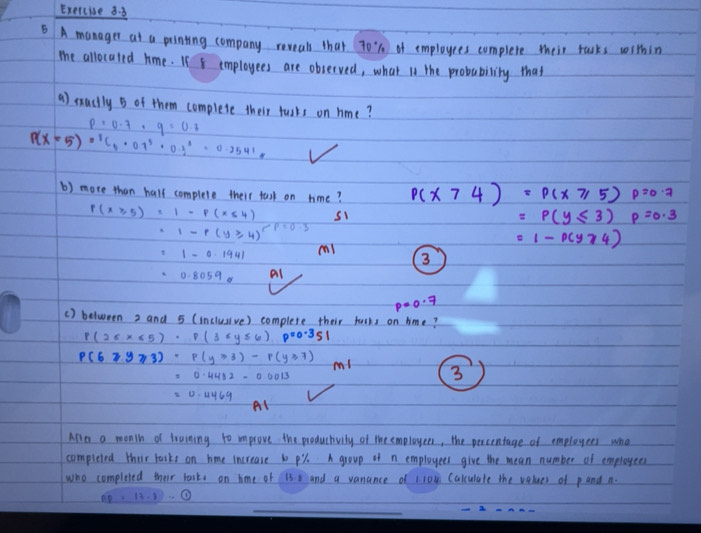 Exercise 3.3
5 A manager at a printing company reveals that 70% of employees complete their tasks within
the allocated time. If 8 employees are observed, what is the probability that
a) exactly 5 of them complete their tasks on time?
p = 0.7, q = 0.3
P(X = 5) = ⁸C₅ • 0.7⁵ • 0.3³ = 0.2541
b) more than half complete their task on time? P(X > 4) = P(X ≥ 5) p=0.7
P(X ≥ 5) = 1 - P(X ≤ 4) S1 = P(Y ≤ 3) p=0.3
= 1 - P(Y ≥ 4) p=0.3 = 1 - P(Y ≥ 4)
= 1 - 0.1941 M1 3
= 0.8059 A1
p=0.7
c) between 2 and 5 (inclusive) complete their tasks on time?
P(2 ≤ X ≤ 5) = P(3 ≤ Y ≤ 6) p=0.3 S1
P(6 ≥ Y ≥ 3) = P(Y ≥ 3) - P(Y ≥ 7)
= 0.4482 - 0.0013 M1 3
= 0.4469
A1
After a month of training to improve the productivity of the employees, the percentage of employees who
completed their tasks on time increase to p%. A group of n employees give the mean number of employees
who completed their tasks on time of 13.8 and a variance of 1.104. Calculate the values of p and n.
= 13.8 ... ①